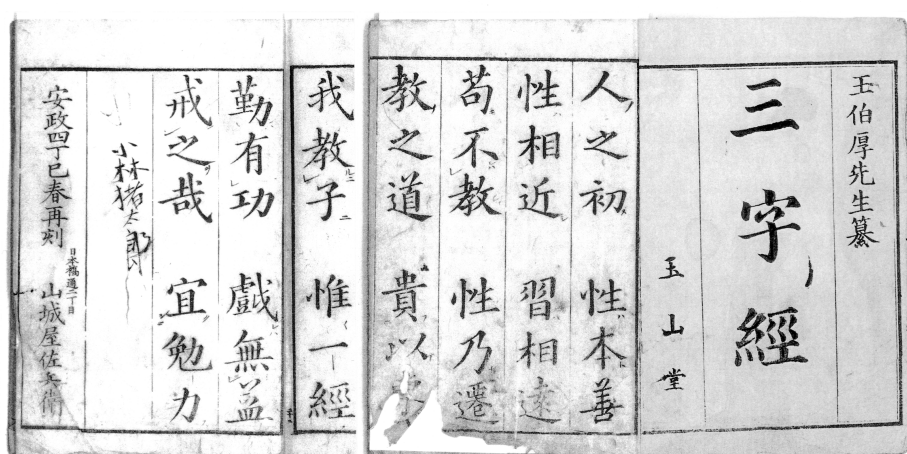 王伯厚先生纂
三字經
玉山堂
人之初　性本善
性相近　習相遠
苟不教　性乃遷
教之道　貴以
我教子　惟一經
勤有功　戲無益
戒之哉　宜勉力
小林猪太郎
安政四丁巳春再刻
日本橋通二丁目
山城屋佐兵衛